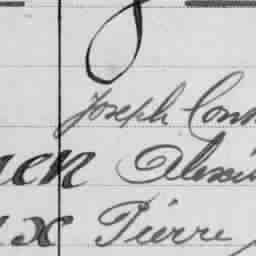 Joseph Conn
nen Alexin
x Pierre